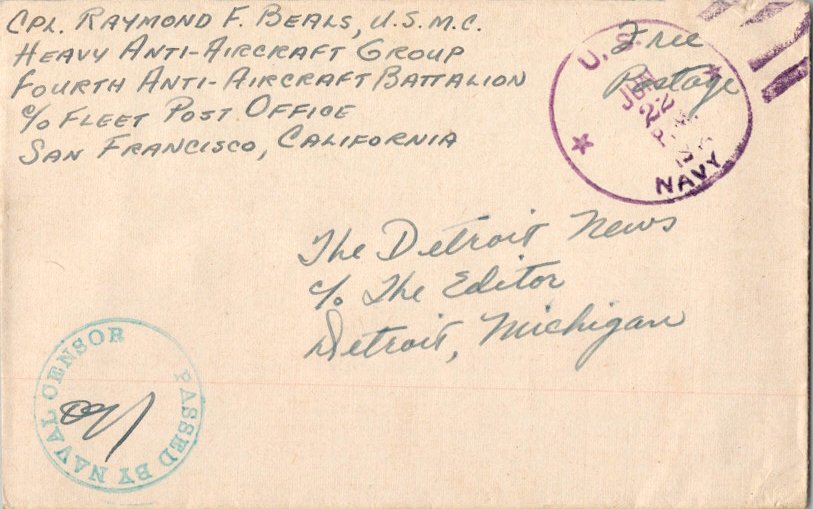 CPL. RAYMOND F. BEALS, U.S.M.C.
HEAVY ANTI-AIRCRAFT GROUP
FOURTH ANTI-AIRCRAFT BATTALION
C/O FLEET POST OFFICE
SAN FRANCISCO, CALIFORNIA
Free
Postage
U.S.
NAVY
The Detroit News
c/o The Editor
Detroit, Michigan
PASSED BY NAVAL CENSOR